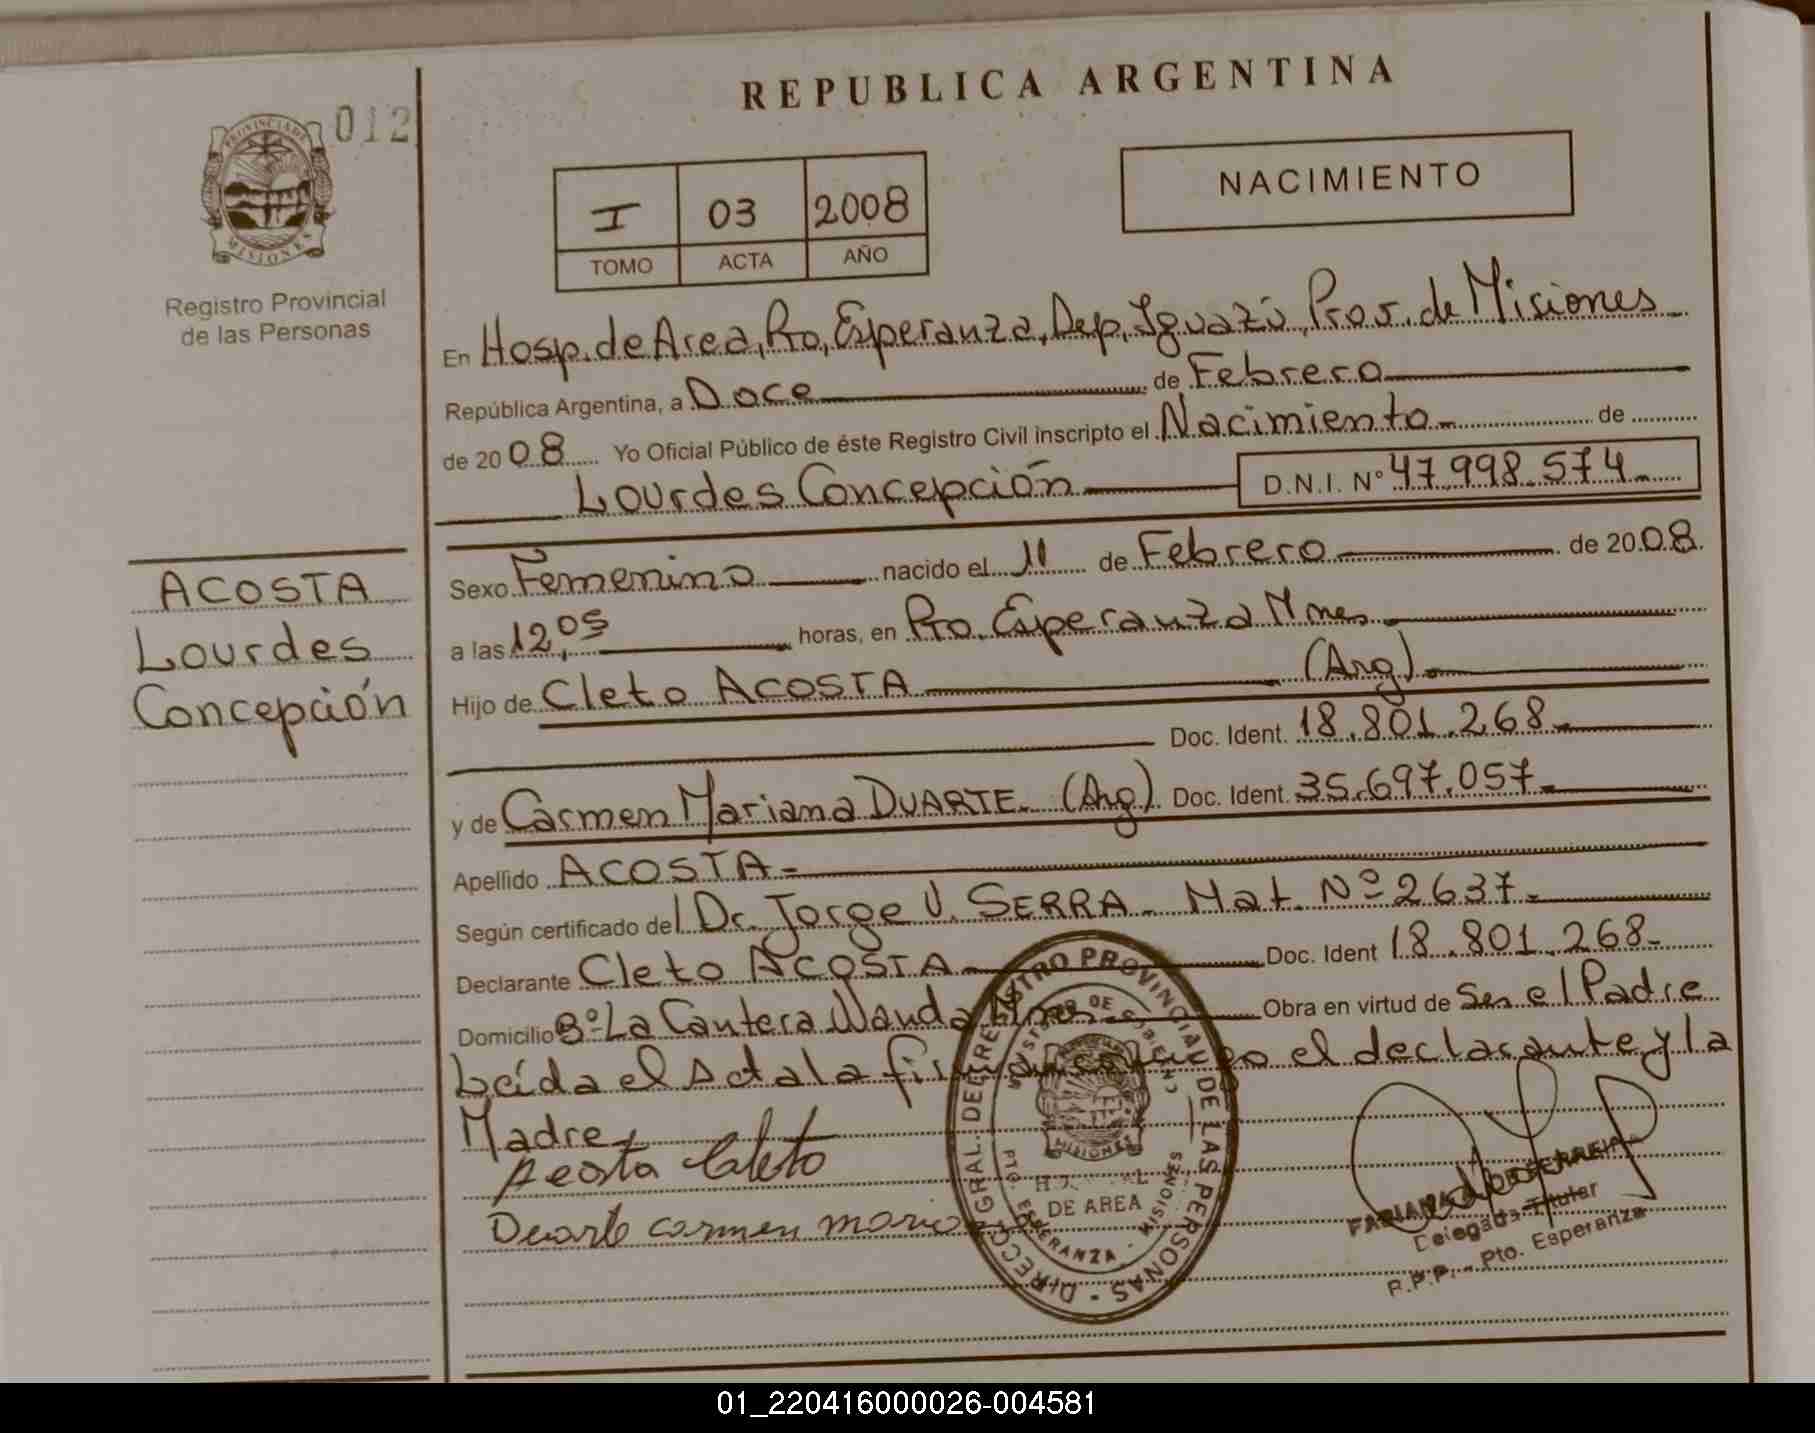 REPUBLICA ARGENTINA
012
PROVINCIA DE
MISIONES
Registro Provincial
de las Personas
I 03 2008
TOMO ACTA AÑO
NACIMIENTO
En Hosp. de Area, Pto, Esperanza, Dep, Iguazú, Prov. de Misiones
República Argentina, a Doce de Febrero
de 2008 Yo Oficial Público de éste Registro Civil inscripto el Nacimiento de
Lourdes Concepción D.N.I. Nº 47.998.574
ACOSTA
Lourdes
Concepción
Sexo Femenino nacido el 11 de Febrero de 2008.
a las 12,05 horas, en Pto. Esperanza Mnes.
Hijo de Cleto ACOSTA (Arg).
Doc. Ident. 18.801.268
y de Carmen Mariana DUARTE. (Arg). Doc. Ident. 35.697.057
Apellido ACOSTA
Según certificado del Dr. Jorge V. SERRA. Mat. Nº 2637.
Declarante Cleto ACOSTA Doc. Ident 18.801.268
Domicilio Bº La Cantera Wanda Mnes. Obra en virtud de Ser el Padre
Leída el Acta la firman conmigo el declarante y la
Madre
Acosta Cleto
Duarte carmen mariana
DIRECC. GRAL. DEL REGISTRO PROVINCIAL DE LAS PERSONAS
MINISTERIO DE GOBIERNO
MISIONES
DE AREA
PTO. ESPERANZA - MISIONES
Delegada Titular
R.P.P. - Pto. Esperanza
01_220416000026-004581